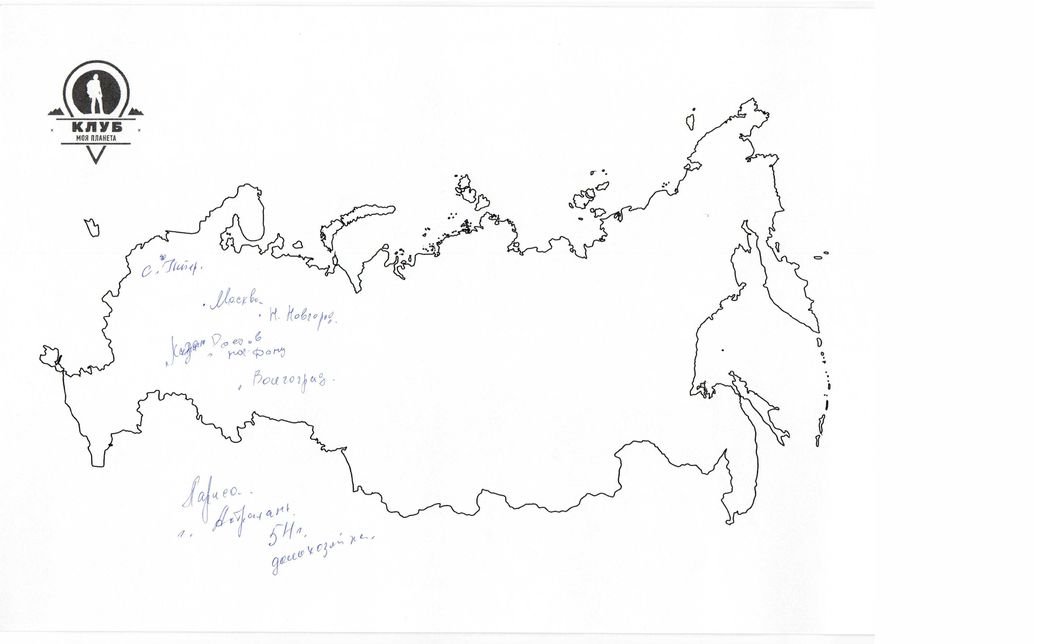 КЛУБ
МОЯ ПЛАНЕТА
С. Питер.
Москва
Н. Новгород.
Ростов
на-Дону
Волгоград.
Лариса.
г. Астрахань.
54 г.
домохозяйка.